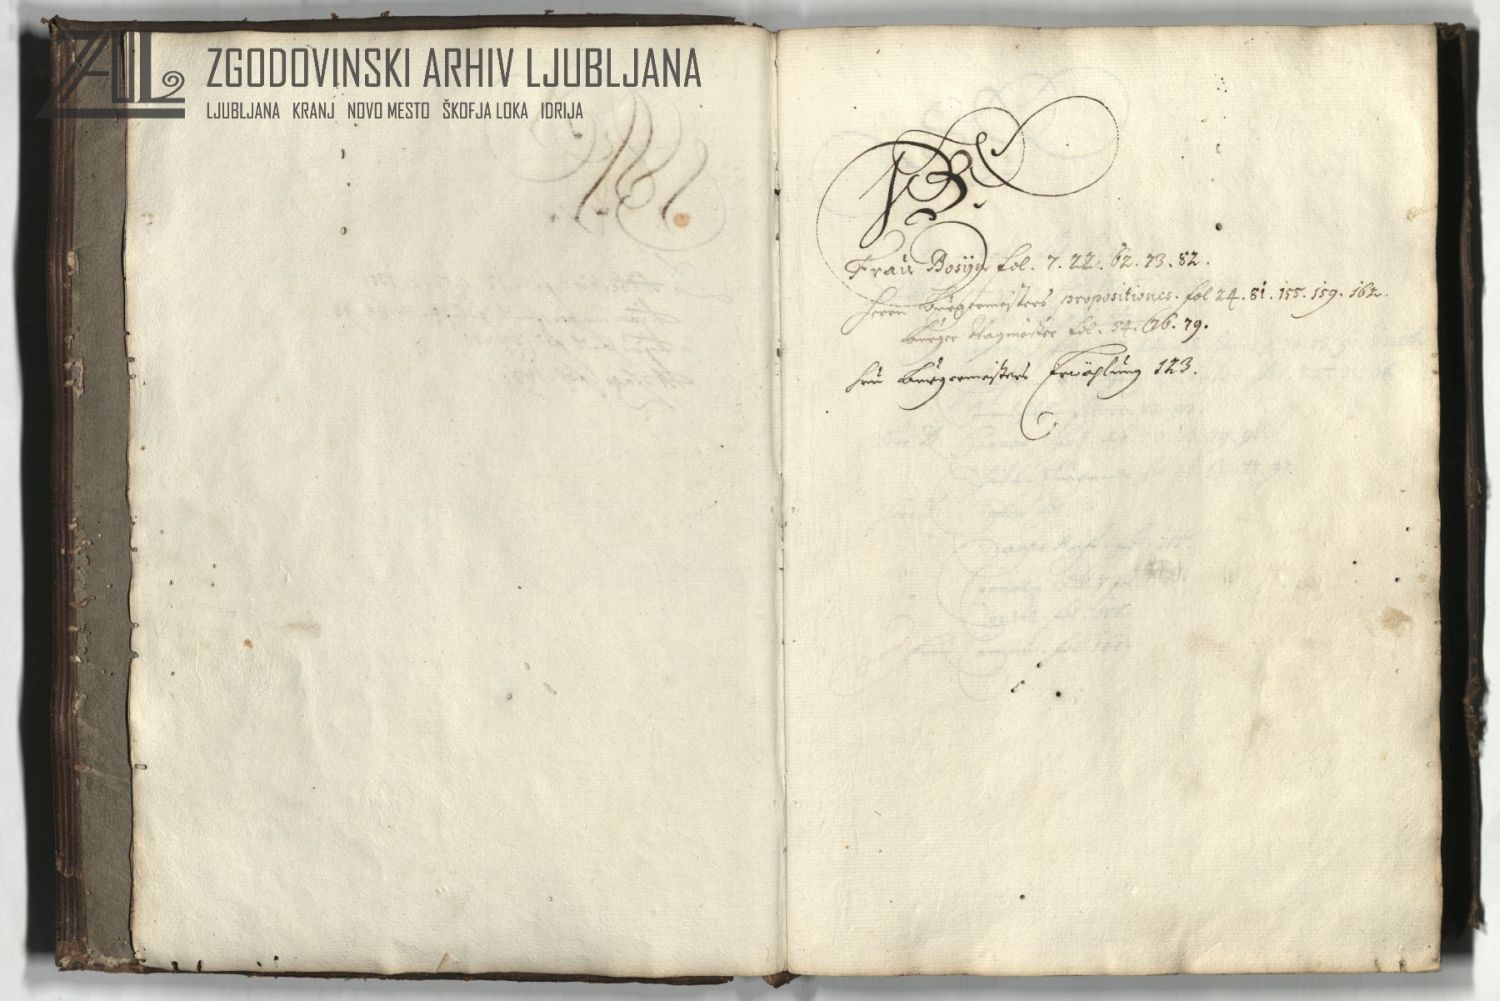 ZGODOVINSKI ARHIV LJUBLJANA
LJUBLJANA KRANJ NOVO MESTO ŠKOFJA LOKA IDRIJA
B
Frau fol. 7. 22. 62. 73. 82.
Herrn Burgermeisters propositiones. fol 24. 81. 155. 159. 162.
Burger fol. 54. 76. 79.
Hrn Burgermeisters Erwöhlung 123.